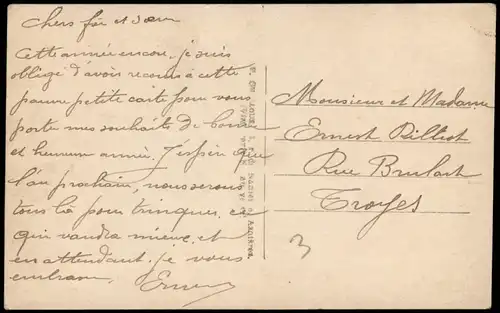 Chers frè et sœur
Cette année encore, je suis
obligé d'avoir recours à cette
pauvre petite carte pour vous
porte mes souhaits de bonne
et heureuse année. J'espère que
l'an prochain, nous serons
tous là pour trinquer, ce
qui vaudra mieux, et
en attendant, je vous
embrasse.
Monsieur et Madame
Ernest
Rue Brulart
Troyes
3